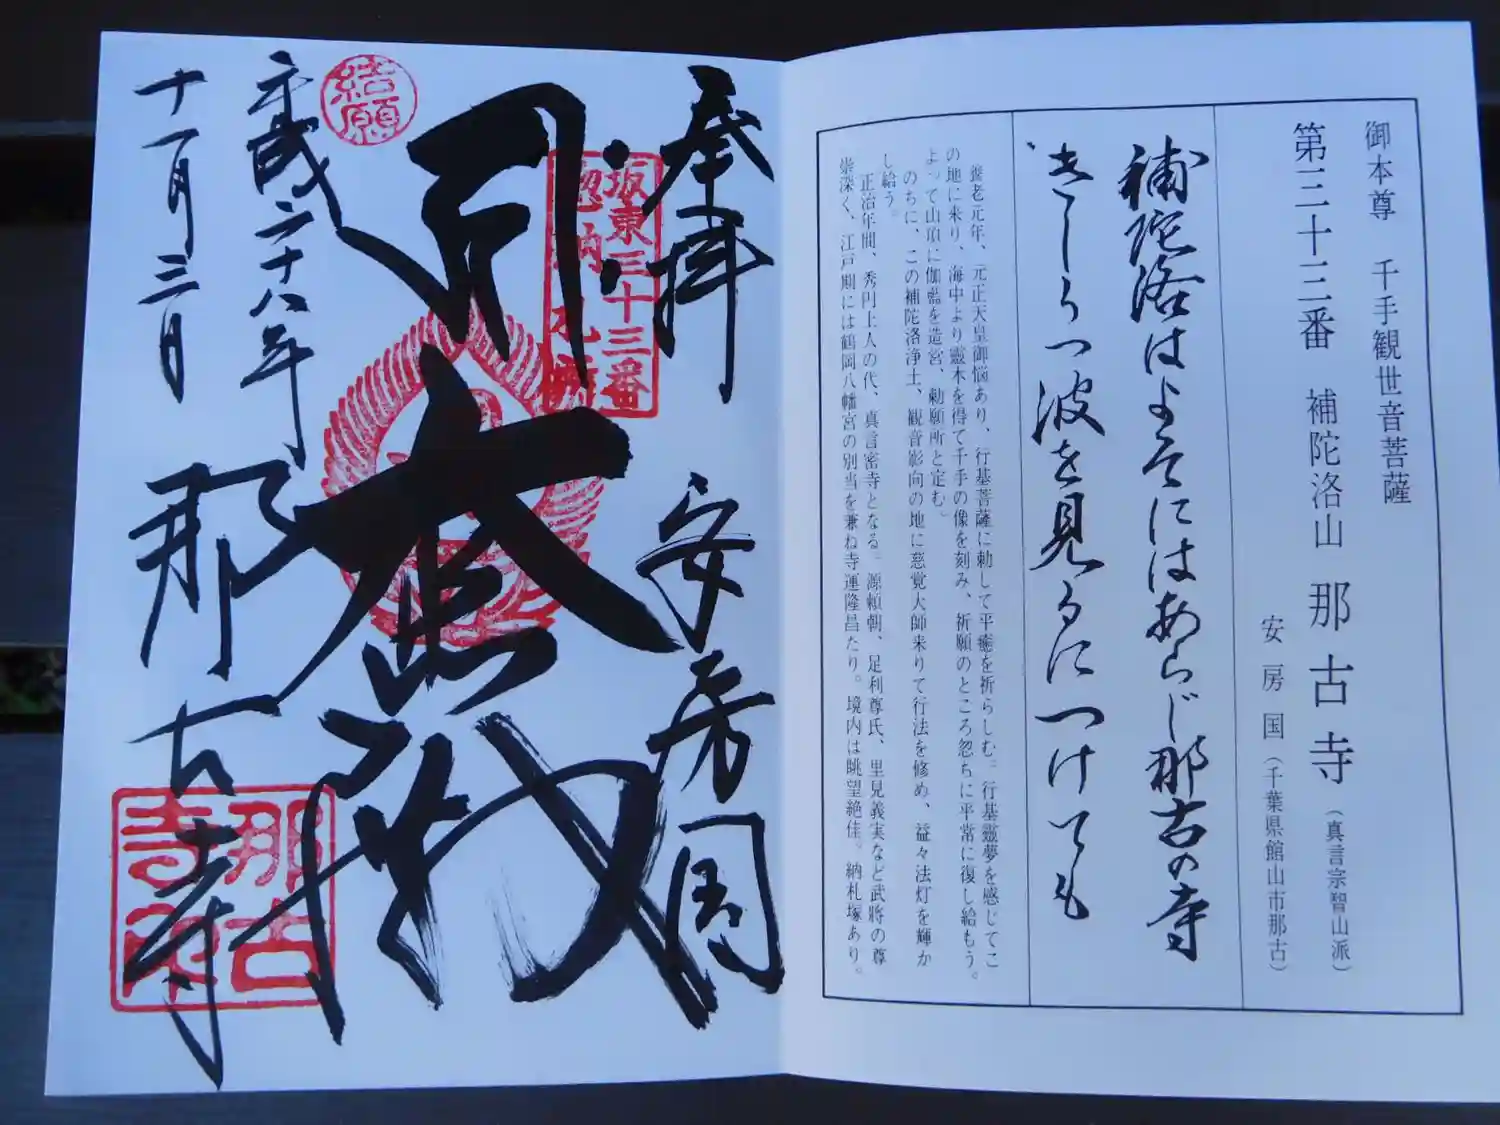 御本尊 千手観世音菩薩
第三十三番 補陀洛山 那古寺 (真言宗智山派)
安房国 (千葉県館山市那古)
補陀洛はよそにはあらじ那古の寺
きしうつ波を見るにつけても
養老元年、元正天皇御悩あり、行基菩薩に勅して平癒を祈らしむ。行基靈夢を感じてこ
の地に来り、海中より靈木を得て千手の像を刻み、祈願のところ忽ちに平常に復し給もう。
よって山頂に伽藍を造営、勅願所と定む。
のちに、この補陀洛浄土、観音影向の地に慈覚大師来りて行法を修め、益々法灯を輝か
し給う。
正治年間、秀円上人の代、真言密寺となる。源頼朝、足利尊氏、里見義実など武將の尊
崇深く、江戸期には鶴岡八幡宮の別当を兼ね寺運隆昌たり。境内は眺望絶佳。納札塚あり。
奉拝 安房国
坂東三十三番
惣納札所
結願
平成二十八年
十一月三日
那古寺
那古
寺印